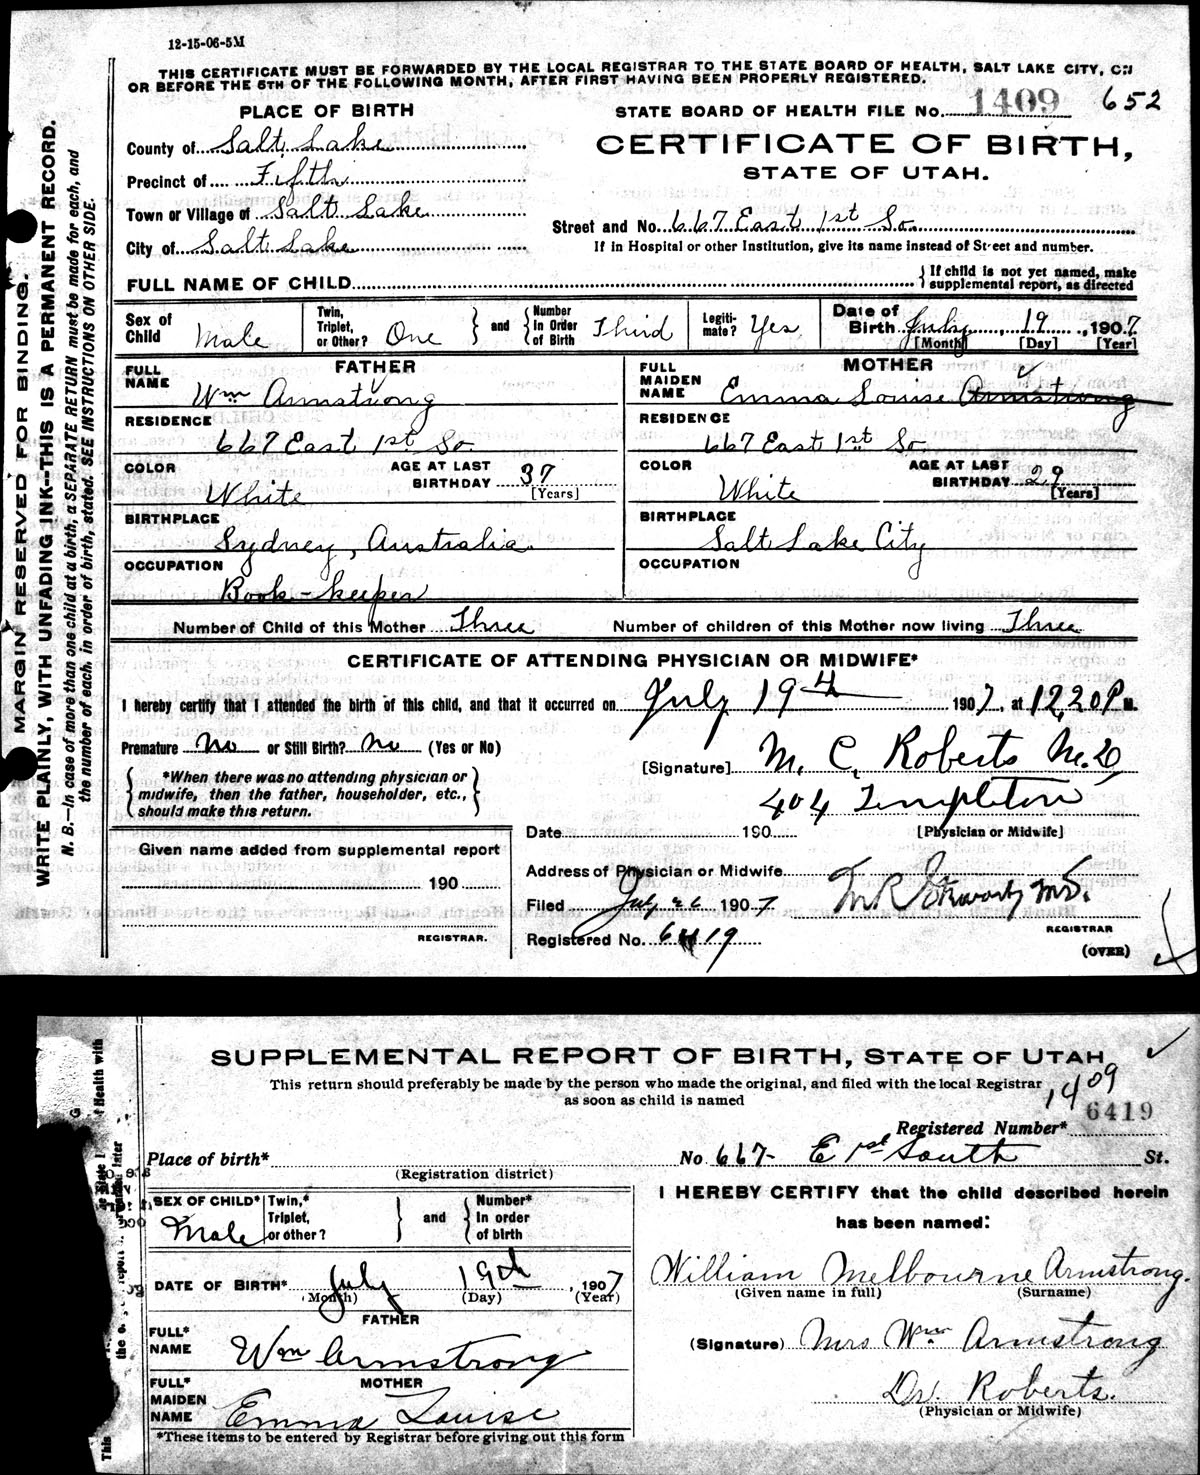 12-15-06-5M
THIS CERTIFICATE MUST BE FORWARDED BY THE LOCAL REGISTRAR TO THE STATE BOARD OF HEALTH, SALT LAKE CITY, ON
OR BEFORE THE 5TH OF THE FOLLOWING MONTH, AFTER FIRST HAVING BEEN PROPERLY REGISTERED.
MARGIN RESERVED FOR BINDING.
WRITE PLAINLY, WITH UNFADING INK--THIS IS A PERMANENT RECORD.
N. B.—In case of more than one child at a birth, a SEPARATE RETURN must be made for each, and
the number of each, in order of birth, stated. SEE INSTRUCTIONS ON OTHER SIDE.
PLACE OF BIRTH
County of Salt Lake
Precinct of Fifth
Town or Village of Salt Lake
City of Salt Lake
STATE BOARD OF HEALTH FILE No. 1409 652
CERTIFICATE OF BIRTH,
STATE OF UTAH.
Street and No. 667 East 1st So.
If in Hospital or other Institution, give its name instead of Street and number.
FULL NAME OF CHILD
If child is not yet named, make
supplemental report, as directed
Sex of Child Male
Twin, Triplet, or Other? One
and Number In Order of Birth Third
Legiti-mate? Yes
Date of Birth July 19, 1907
[Month] [Day] [Year]
FATHER
FULL NAME Wm Armstrong
RESIDENCE 667 East 1st So.
COLOR White
AGE AT LAST BIRTHDAY 37 [Years]
BIRTHPLACE Sydney, Australia
OCCUPATION Book-keeper
MOTHER
FULL MAIDEN NAME Emma Louise Armstrong
RESIDENCE 667 East 1st So.
COLOR White
AGE AT LAST BIRTHDAY 29 [Years]
BIRTHPLACE Salt Lake City
OCCUPATION
Number of Child of this Mother Three Number of children of this Mother now living Three
CERTIFICATE OF ATTENDING PHYSICIAN OR MIDWIFE*
I hereby certify that I attended the birth of this child, and that it occurred on July 19th 1907, at 12,20 P M.
Premature No or Still Birth? No (Yes or No)
*When there was no attending physician or
midwife, then the father, householder, etc.,
should make this return.
[Signature] M. C. Roberts M.D.
404 Templeton
Date 190 [Physician or Midwife]
Given name added from supplemental report
190
REGISTRAR.
Address of Physician or Midwife
Filed July 26 1907
REGISTRAR
Registered No. 6419
(OVER)
SUPPLEMENTAL REPORT OF BIRTH, STATE OF UTAH
This return should preferably be made by the person who made the original, and filed with the local Registrar
as soon as child is named
1409
Registered Number* 6419
Place of birth* No 667- E 1st South St.
(Registration district)
SEX OF CHILD* Male
Twin,* Triplet, or other?
and Number* In order of birth
DATE OF BIRTH* July 19th, 1907
(Month) (Day) (Year)
FATHER
FULL* NAME Wm Armstrong
MOTHER
FULL* MAIDEN NAME Emma Louise
*These items to be entered by Registrar before giving out this form
I HEREBY CERTIFY that the child described herein
has been named:
William Melbourne Armstrong.
(Given name in full) (Surname)
(Signature) Mrs Wm Armstrong
Dr. Roberts.
(Physician or Midwife)